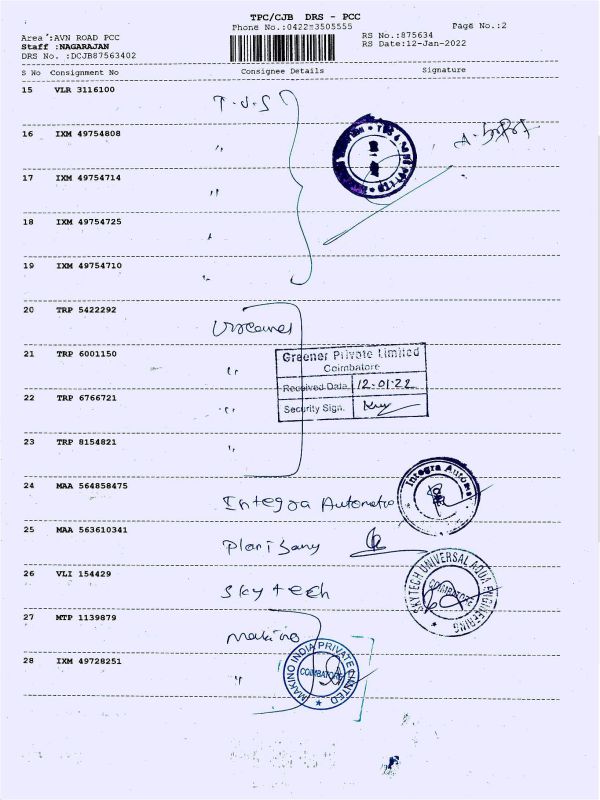 TPC/CJB DRS - PCC
Phone No.:0422=3505555
Page No.:2
Area :AVN ROAD PCC
RS No.:875634
Staff :NAGARAJAN
RS Date:12-Jan-2022
DRS No. :DCJB87563402
S No Consignment No Consignee Details Signature
15 VLR 3116100
T.V.S
16 IXM 49754808
"
17 IXM 49754714
"
18 IXM 49754725
19 IXM 49754710
"
20 TRP 5422292
21 TRP 6001150
"
Greener Private Limited
Coimbatore
Received Date 12.01.22
22 TRP 6766721
"
Security Sign.
23 TRP 8154821
"
24 MAA 564858475
Integra Automatio
Integra Automa
25 MAA 563610341
26 VLI 154429
Skytech
SKYTECH UNIVERSAL AQUA ENGINEERING
COIMBATORE
27 MTP 1139879
Makino
28 IXM 49728251
"
MAKINO INDIA PRIVATE LIMITED
COIMBATORE